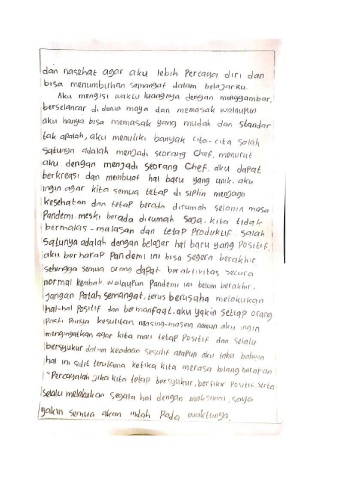 dan nasehat agar aku lebih Percaya diri dan
bisa menumbuhkan semangat dalam belajarku.
Aku mengisi waktu luangnya dengan menggambar,
berselancar di dunia maya dan memasak walaupun
aku hanya bisa memasak yang mudah dan standar
tak apalah, aku memiliki banyak cita-cita salah
satunya adalah menjadi seorang Chef, menurut
aku dengan menjadi seorang Chef, aku dapat
berkreasi dan membuat hal baru yang unik. aku
ingin agar kita semua tetap di siplin menjaga
kesehatan dan tetap berada dirumah selama masa
Pandemi meski berada dirumah saja, kita tidak
bermalas-malasan dan tetap Produktif salah
satunya adalah dengan belajar hal baru yang Positif,
aku berharap Pandemi ini bisa segera berakhir
sehingga semua orang dapat beraktivitas secara
normal kembali walaupun Pandemi ini belum berakhir,
jangan Patah semangat, terus berusaha melakukan
hal-hal Positif dan bermanfaat. aku yakin setiap orang
Pasti Punya kesulitan masing-masing namun aku ingin
mengingatkan agar kita mari tetap Positif dan selalu
bersyukur dalam keadaan sesulit apapun aku tahu bahwa
hal ini sulit terutama ketika kita merasa hilang harapan
"Percayalah jika kita tetap bersyukur, berfikir Positif serta
selalu melakukan segala hal dengan maksimal, saya
yakin semua akan indah Pada waktunya.